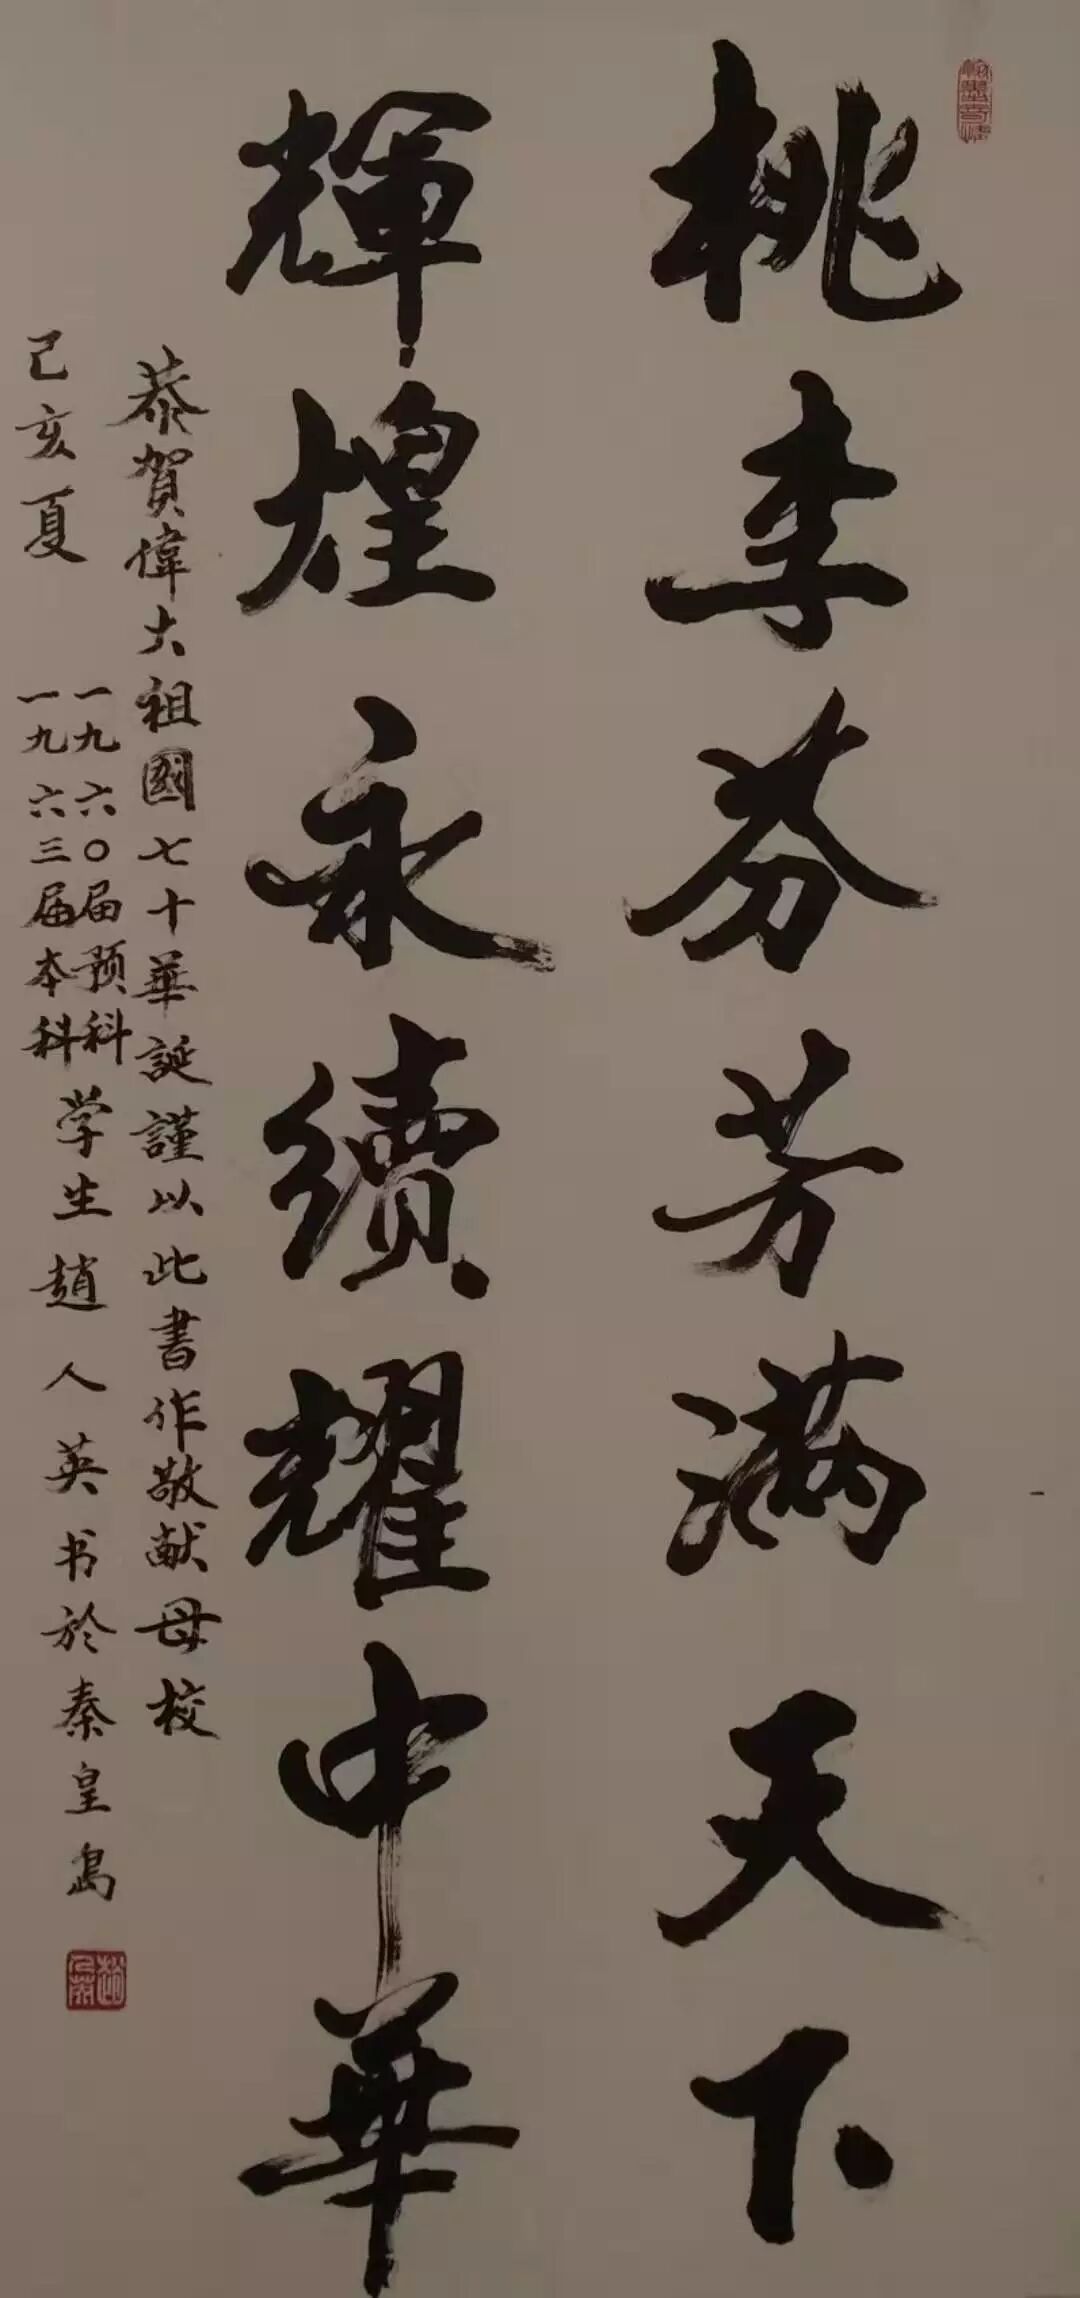 桃李芬芳满天下
輝煌永續耀中華
恭賀偉大祖國七十華誕謹以此書作敬献母校
己亥夏
一九六〇届预科
一九六三届本科
学生趙人英书於秦皇島